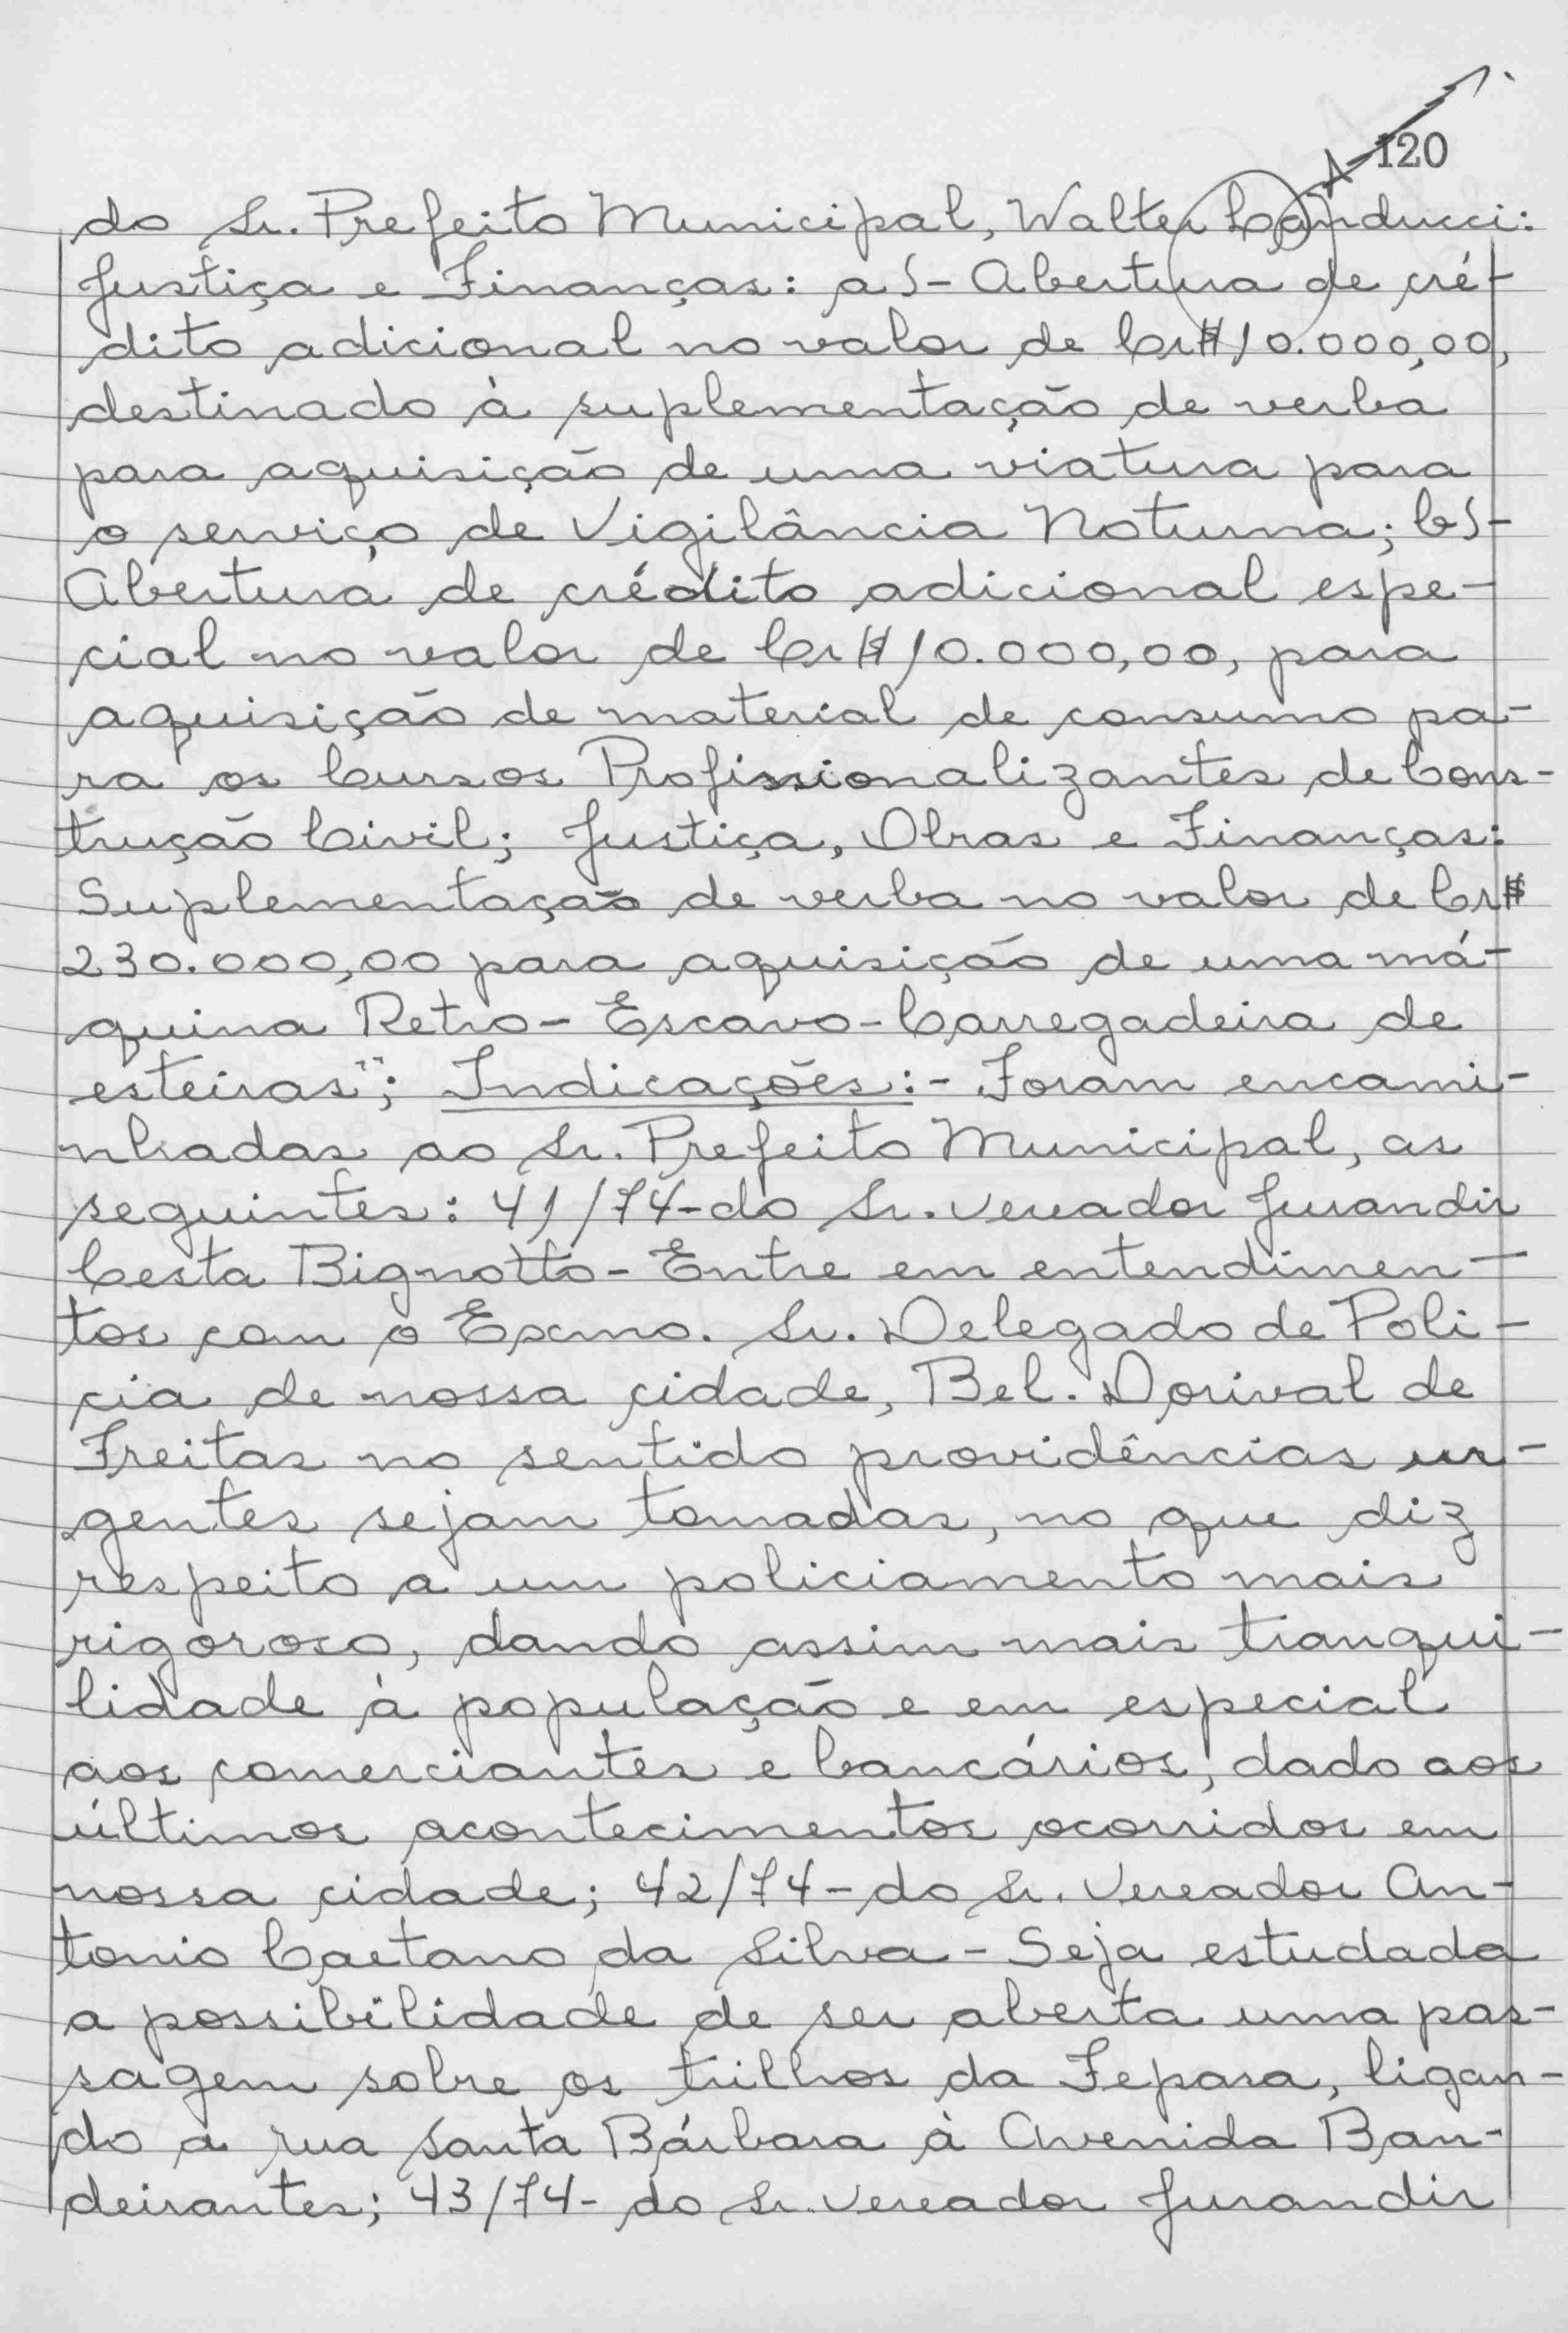 120
do Sr. Prefeito Municipal, Walter Canducci:
Justiça e Finanças: a)- Abertura de cré-
dito adicional no valor de Cr$10.000,00,
destinado à suplementação de verba
para aquisição de uma viatura para
o serviço de Vigilância Noturna; b)-
Abertura de crédito adicional espe-
cial no valor de Cr$10.000,00, para
aquisição de material de consumo pa-
ra os Cursos Profissionalizantes de Cons-
trução Civil; Justiça, Obras e Finanças:
Suplementação de verba no valor de Cr$
230.000,00 para aquisição de uma má-
quina Retro-Escavo-Carregadeira de
esteiras"; Indicações:- Foram encami-
nhadas ao Sr. Prefeito Municipal, as
seguintes: 41/74-do Sr. Vereador Jurandir
Cesta Bignotto- Entre em entendimen-
tos com o Exmo. Sr. Delegado de Poli-
cia de nossa cidade, Bel. Dorival de
Freitas no sentido providências ur-
gentes sejam tomadas, no que diz
respeito a um policiamento mais
rigoroso, dando assim mais tranqui-
lidade à população e em especial
aos comerciantes e bancários, dado aos
últimos acontecimentos ocorridos em
nossa cidade; 42/74-do Sr. Vereador An-
tonio Caetano da Silva - Seja estudada
a possibilidade de ser aberta uma pas-
sagem sobre os trilhos da Fepasa, ligan-
do a rua Santa Bárbara à Avenida Ban-
deirantes; 43/74- do Sr. Vereador Jurandir